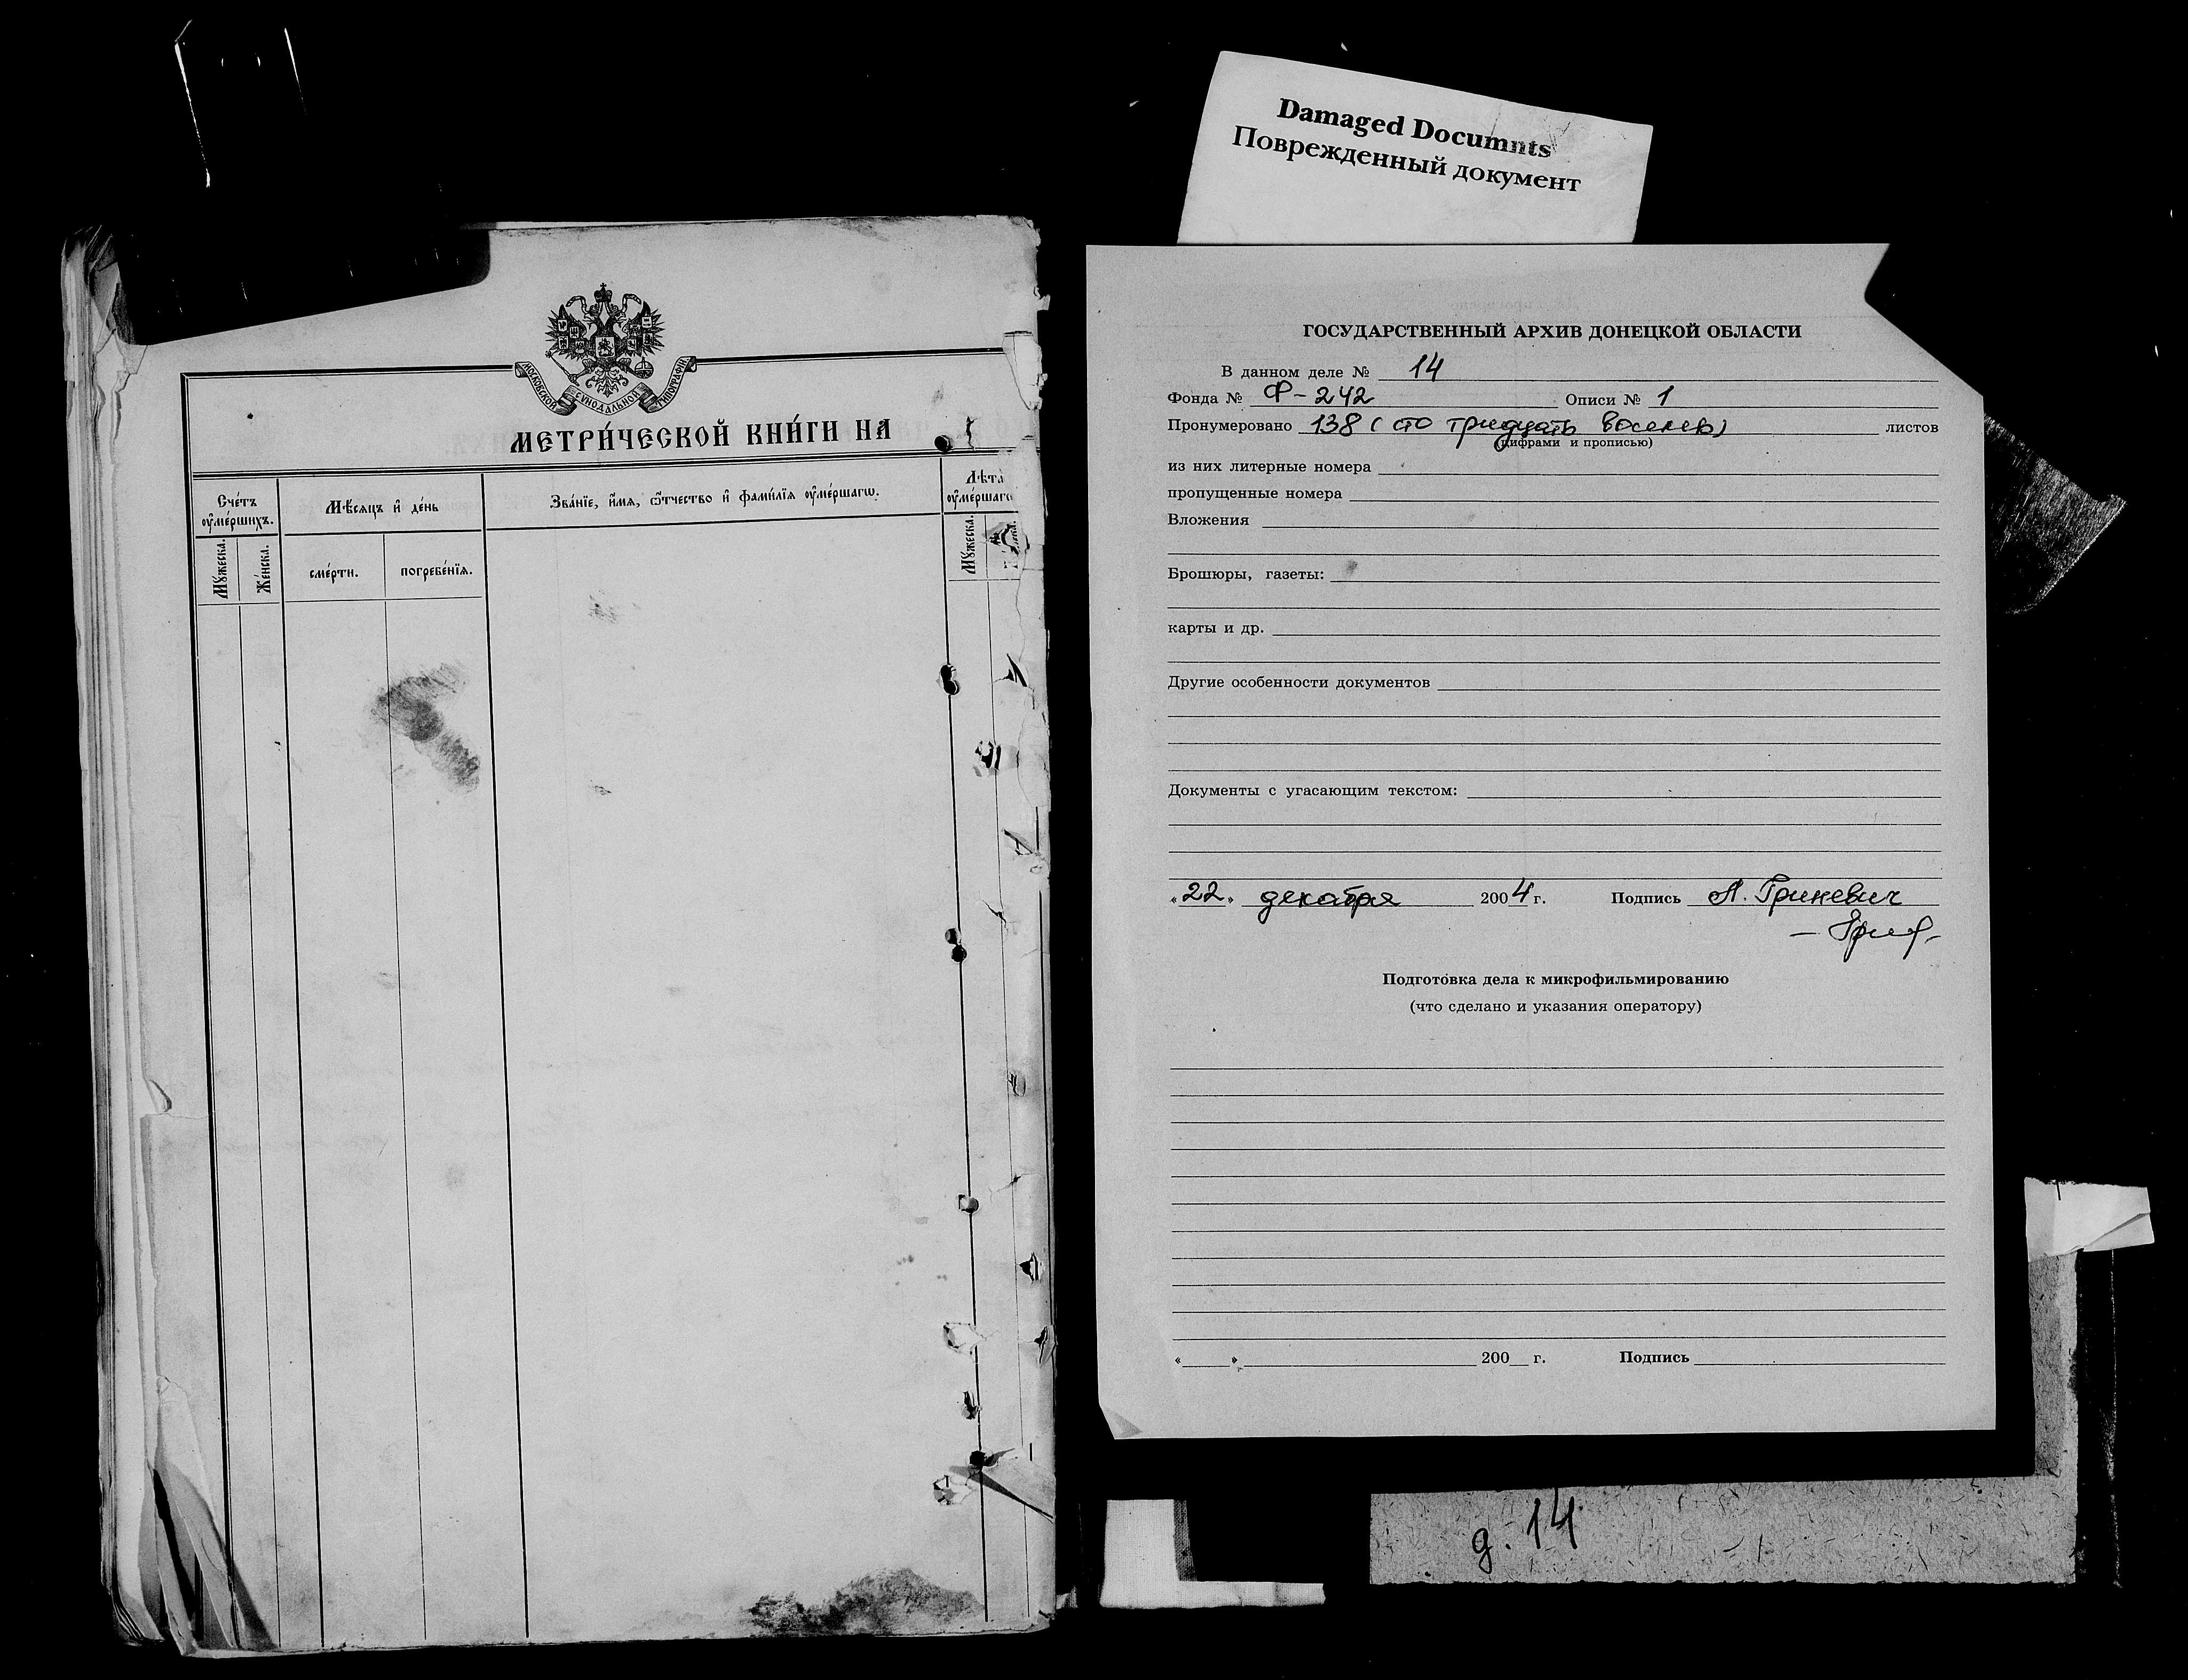 Damaged Documnts
Поврежденный документ
МОСКОВСКОЙ СУНОДАЛЬНОЙ ТИПОГРАФІИ.
МЕТРИ́ЧЕСКОЙ КНИ́ГИ НА
Сче́тъ ᲂу҆ме́ршихъ.
Мѣ́сяцъ и҆ де́нь
Зва́нїе, и҆́мя, ѻ҆́тчество и҆ фами́лїя ᲂу҆ме́ршагѡ.
Лѣ́та ᲂу҆ме́ршагѡ
Му́жеска.
Же́нска.
сме́рти.
погребе́нїя.
Му́жеска.
ГОСУДАРСТВЕННЫЙ АРХИВ ДОНЕЦКОЙ ОБЛАСТИ
В данном деле № 14
Фонда № Ф-242 Описи № 1
Пронумеровано 138 (сто тридцать восемь) листов
(цифрами и прописью)
из них литерные номера
пропущенные номера
Вложения
Брошюры, газеты:
карты и др.
Другие особенности документов
Документы с угасающим текстом:
«22» декабря 2004 г. Подпись Л. Гриневич
Подготовка дела к микрофильмированию
(что сделано и указания оператору)
« » 200 г. Подпись
д. 14